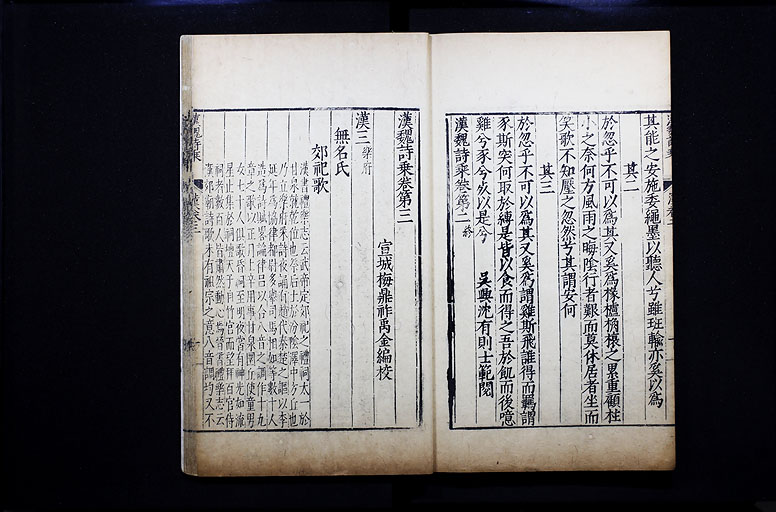 其能之安施委繩墨以聽人兮雖班輸亦奚以爲
其二
於忽乎不可以爲其又奚爲椽櫨桷榱之累重顧柱
小之奈何方風雨之晦陰行者艱而莫休居者坐而
笑歌不知壓之忽然兮其謂安何
其三
於忽乎不可以爲其又奚爲謂雞斯飛誰得而羈謂
豕斯突何取於縛是皆以食而得之吾於飢而後噫
雞兮豕兮死以是兮
吳興沈有則士範閱
漢魏詩乘卷第二終
漢魏詩乘卷第三
宣城梅鼎祚禹金編校
漢三樂府
無名氏
郊祀歌
漢書禮樂志云武帝定郊祀之禮祠太一於
甘泉就乾位也祭后土於汾陰澤中方丘也
乃立樂府采詩夜誦有趙代秦楚之謳以李
延年爲協律都尉多舉司馬相如等數十人
造爲詩賦略論律呂以合八音之調作十九
章之歌以正月上辛用事甘泉圜丘使童男
女七十人俱歌昏祠至明夜常有神光如流
星止集於祠壇天子自竹宮而望拜百官侍
祠者數百人皆肅然動心焉晉書禮樂志云
漢郊廟詩歌未有祖宗之意八音調均又不